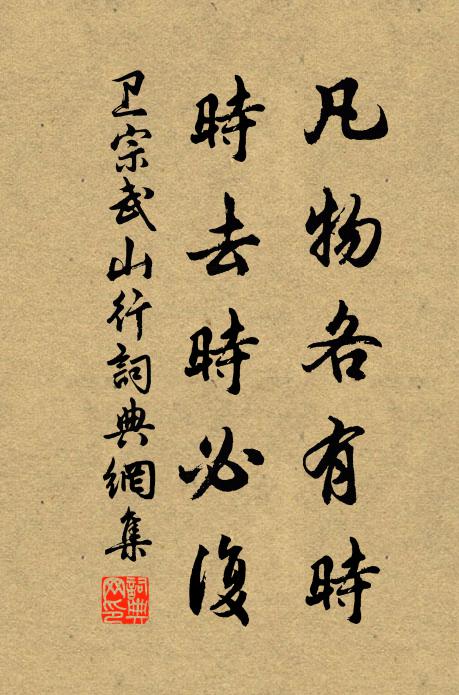 凡物各有時
時去時必復
卫宗武山行詞典網集
詞典網印